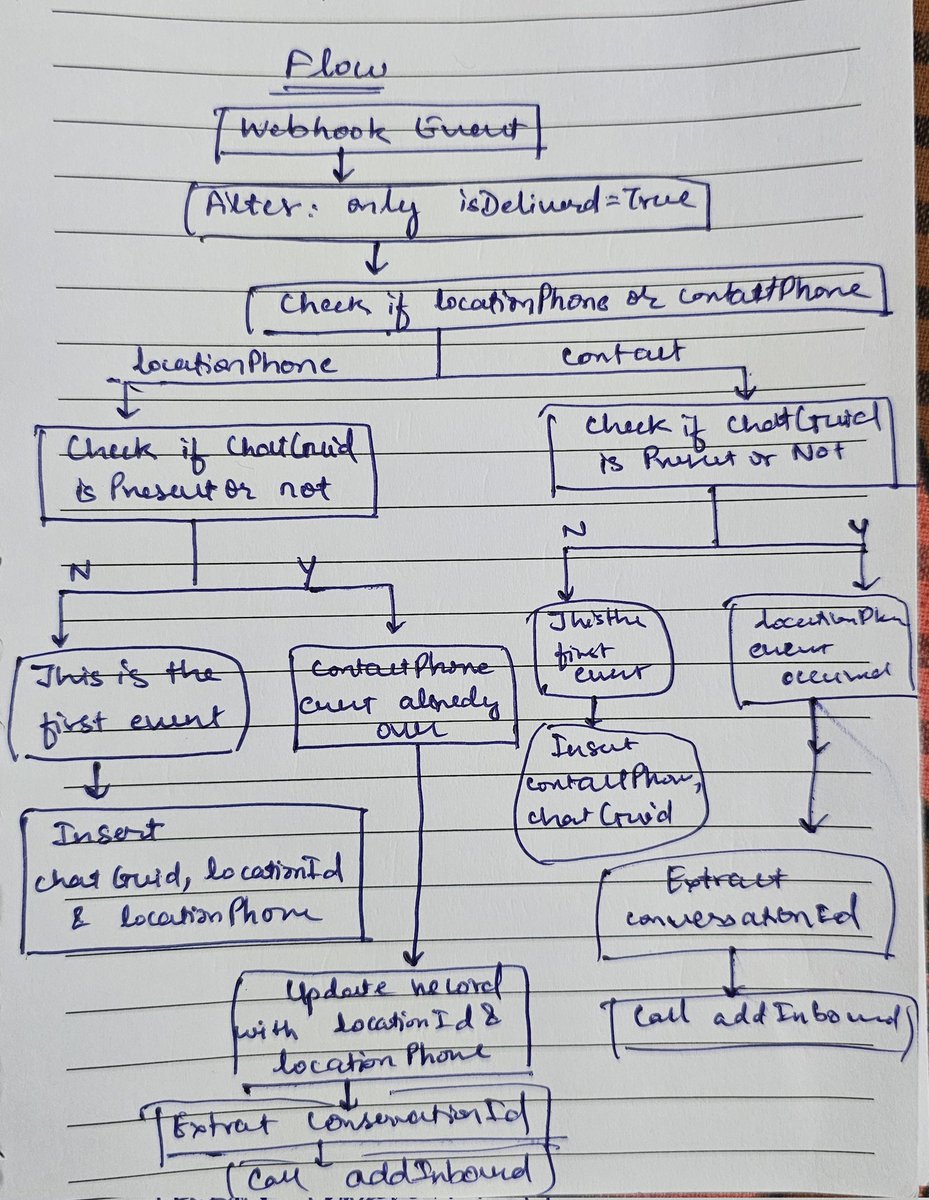 Flow
Webhook Event
Filter: only isDelivered=True
Check if locationPhone or contactPhone
locationPhone
contact
Check if ChatGuid
is Present or not
Check if ChatGuid
is Present or Not
N
Y
N
Y
This is the
first event
contactPhone
event already
over
This the
first
event
event
occurred
Insert
chatGuid, locationId
& locationPhone
Insert
contactPhone,
chatGuid
Extract
conversationId
Call addInbound
Update record
with locationId &
locationPhone
Extrat ConservationId
Call addInbound